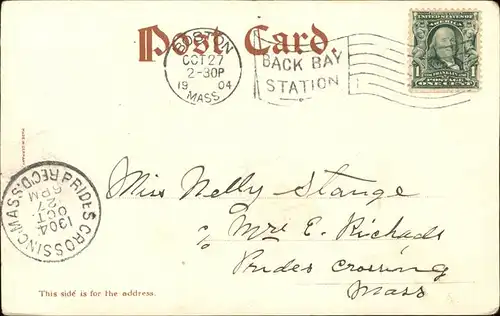 Post Card.
BOSTON
OCT 27
2-30P
1904
MASS
BACK BAY
STATION
UNITED STATES OF AMERICA
1
ONE CENT
PRIDES CROSSING, MASS. REC'D
6 PM
27
OCT.
1904
Miss Nelly Stange
c/o Mrs E. Richads
Prides Crossing
Mass
This side is for the address.